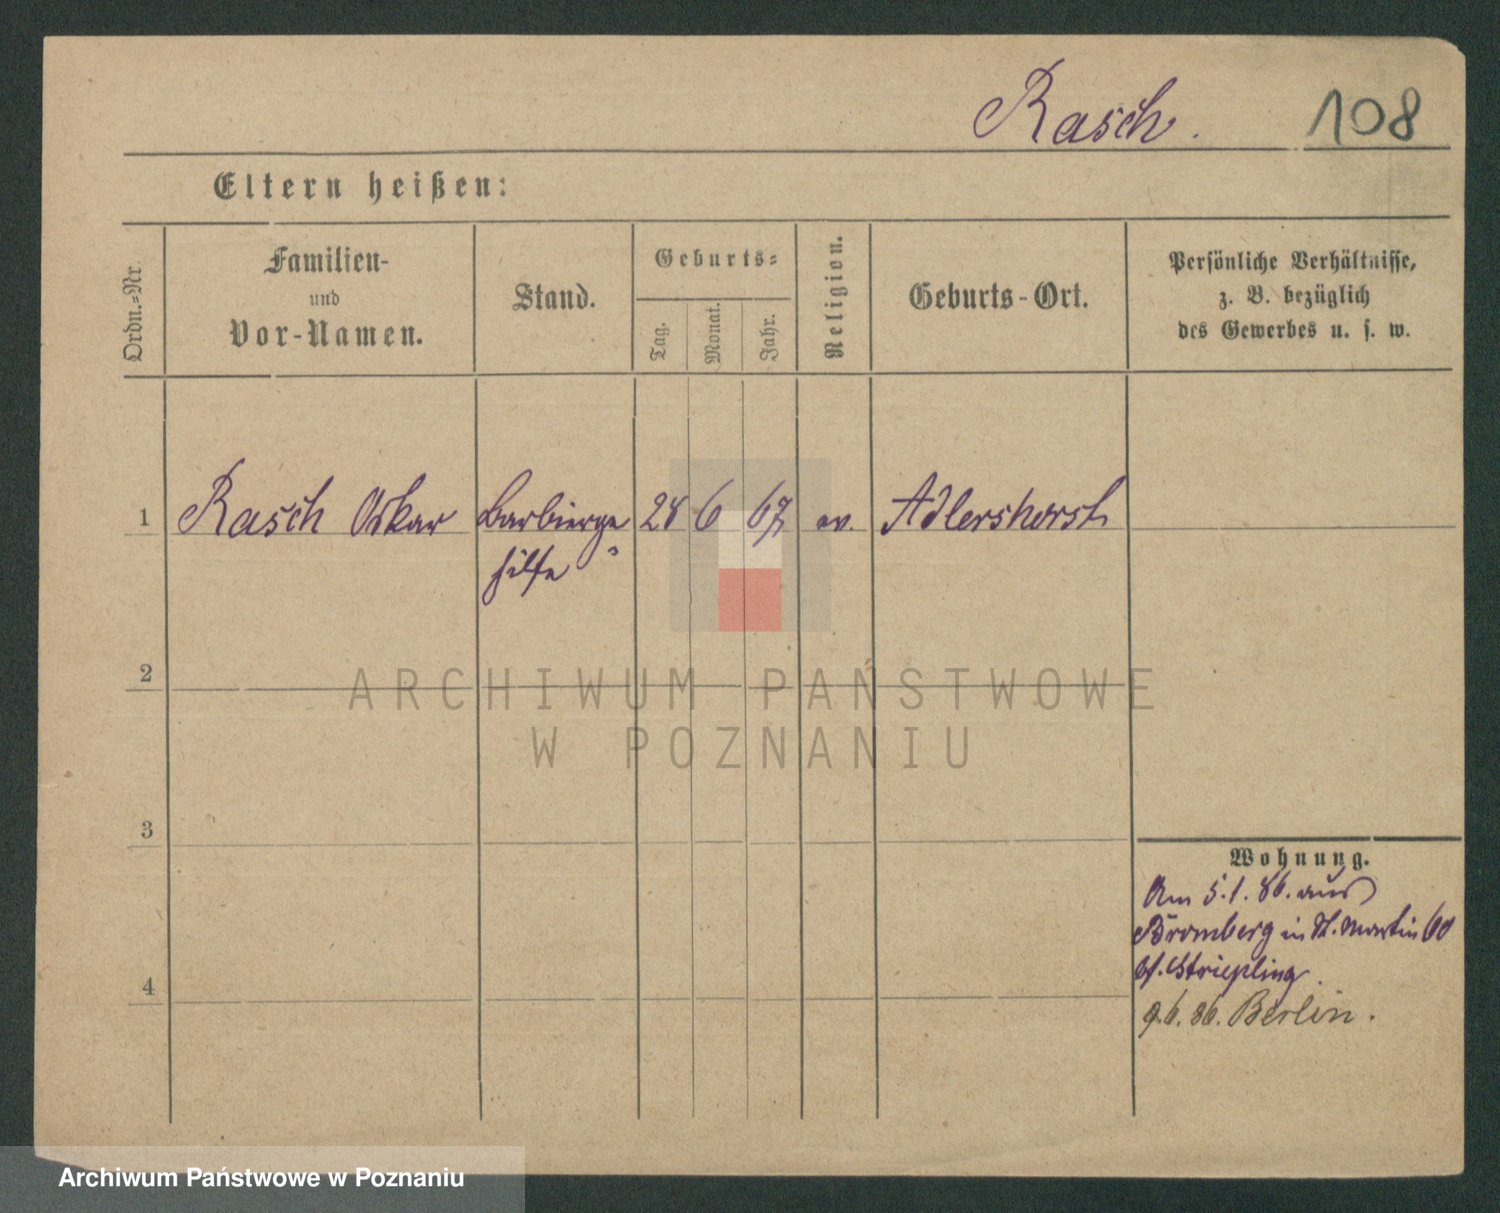 Rasch. 108
Eltern heißen:
Ordn.=Nr.
Familien-
und
Vor-Namen.
Stand.
Geburts=
Tag.
Monat.
Jahr.
Religion.
Geburts-Ort.
Persönliche Verhältnisse,
z. B. bezüglich
des Gewerbes u. s. w.
1 Rasch Oskar Barbierge 28 6 67 ev. Adlershorst
hilfe
2
ARCHIWUM PAŃSTWOWE
W POZNANIU
3
Wohnung.
Am 5.1.86. aus
Bromberg in St. Martin 60
bf. Striepling.
4
9.6.86. Berlin.
Archiwum Państwowe w Poznaniu